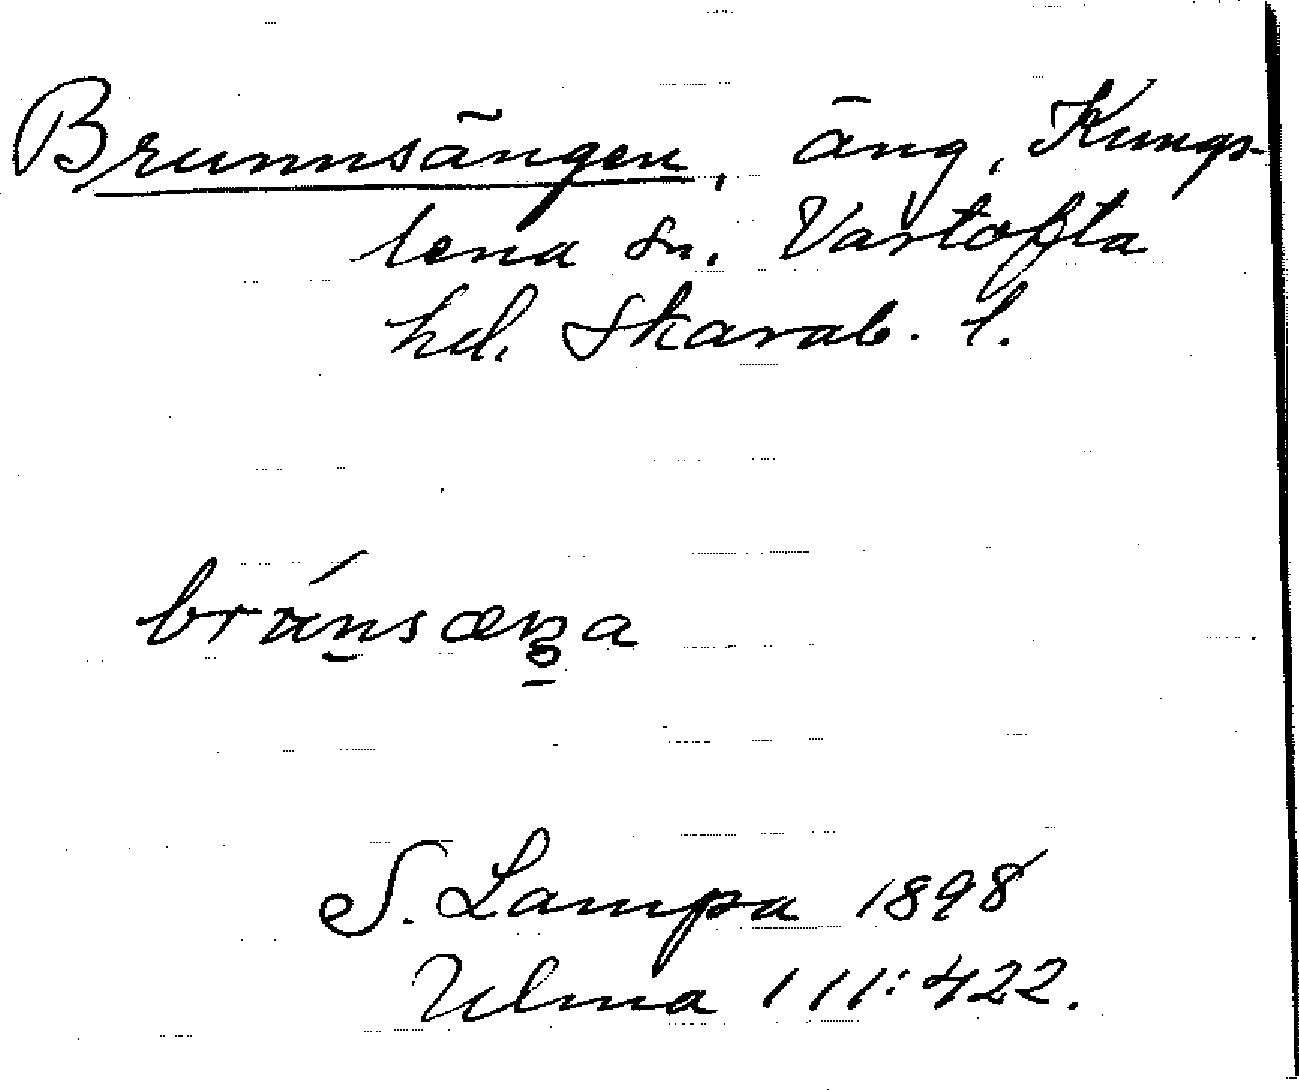 Brunnsängen, äng, Kungs-
lena sn. Vartofta
hd. Skarab. l.
S. Lampa 1898
Ulma 111:422.